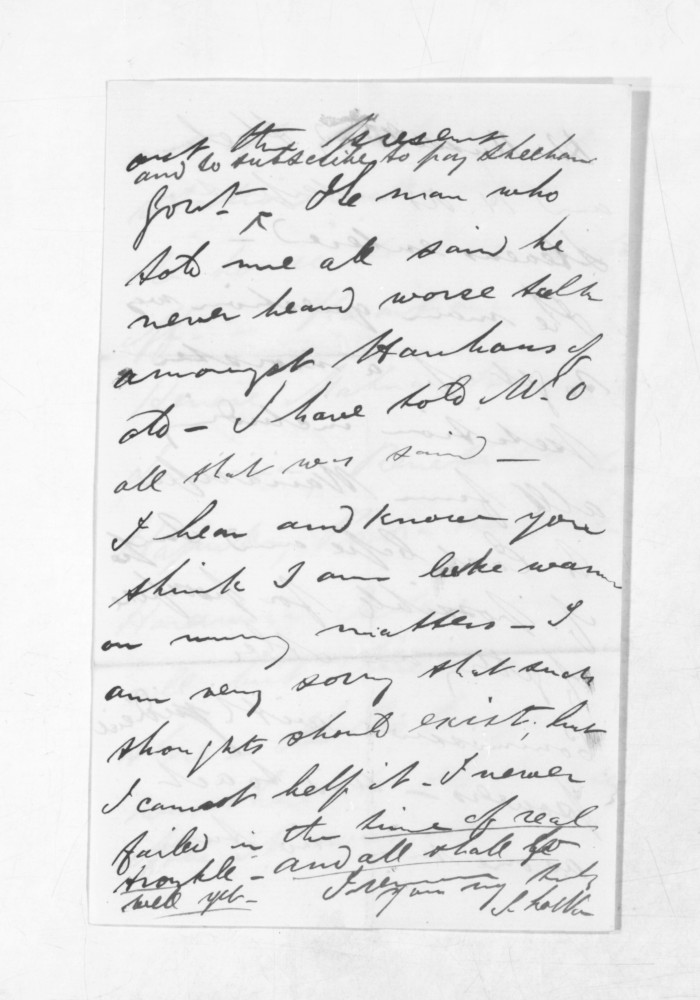 out the present
and to subscribe to pay Sheehan
Govt. ^ The man who
told me all said he
never heard worse talk
amongst Hauhaus of
old — I have told Mr. O
all that was said —
I hear and know you
think I am luke warm
on many matters — I
am very sorry that such
thoughts should exist; but
I cannot help it. I never
failed in the time of real
trouble — and all shall go
well yet — I remain my